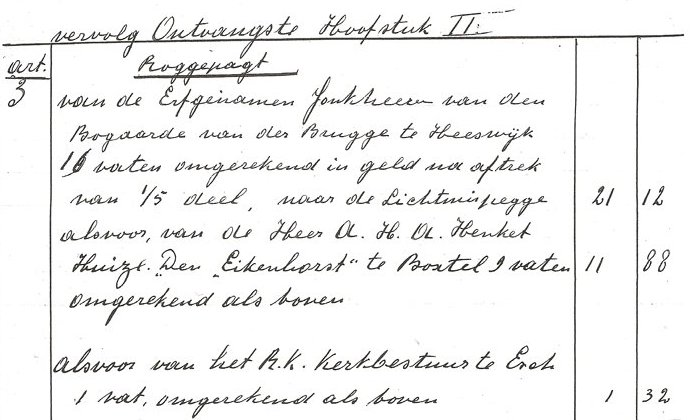 vervolg Ontvangste Hoofstuk II:
art. Roggepagt
3 van de Erfgenamen Jonkheer van den
Bogaarde van der Brugge te Heeswijk
16 vaten omgerekend in geld na aftrek
van 1/5 deel, naar de Lichtmispegge 21 12
alsvoor, van de Heer A. H. A. Henket
Huize. Den „Eikenhorst" te Boxtel 9 vaten 11 88
omgerekend als boven
alsvoor van het R.K. Kerkbestuur te Esch
1 vat, omgerekend als boven 1 32